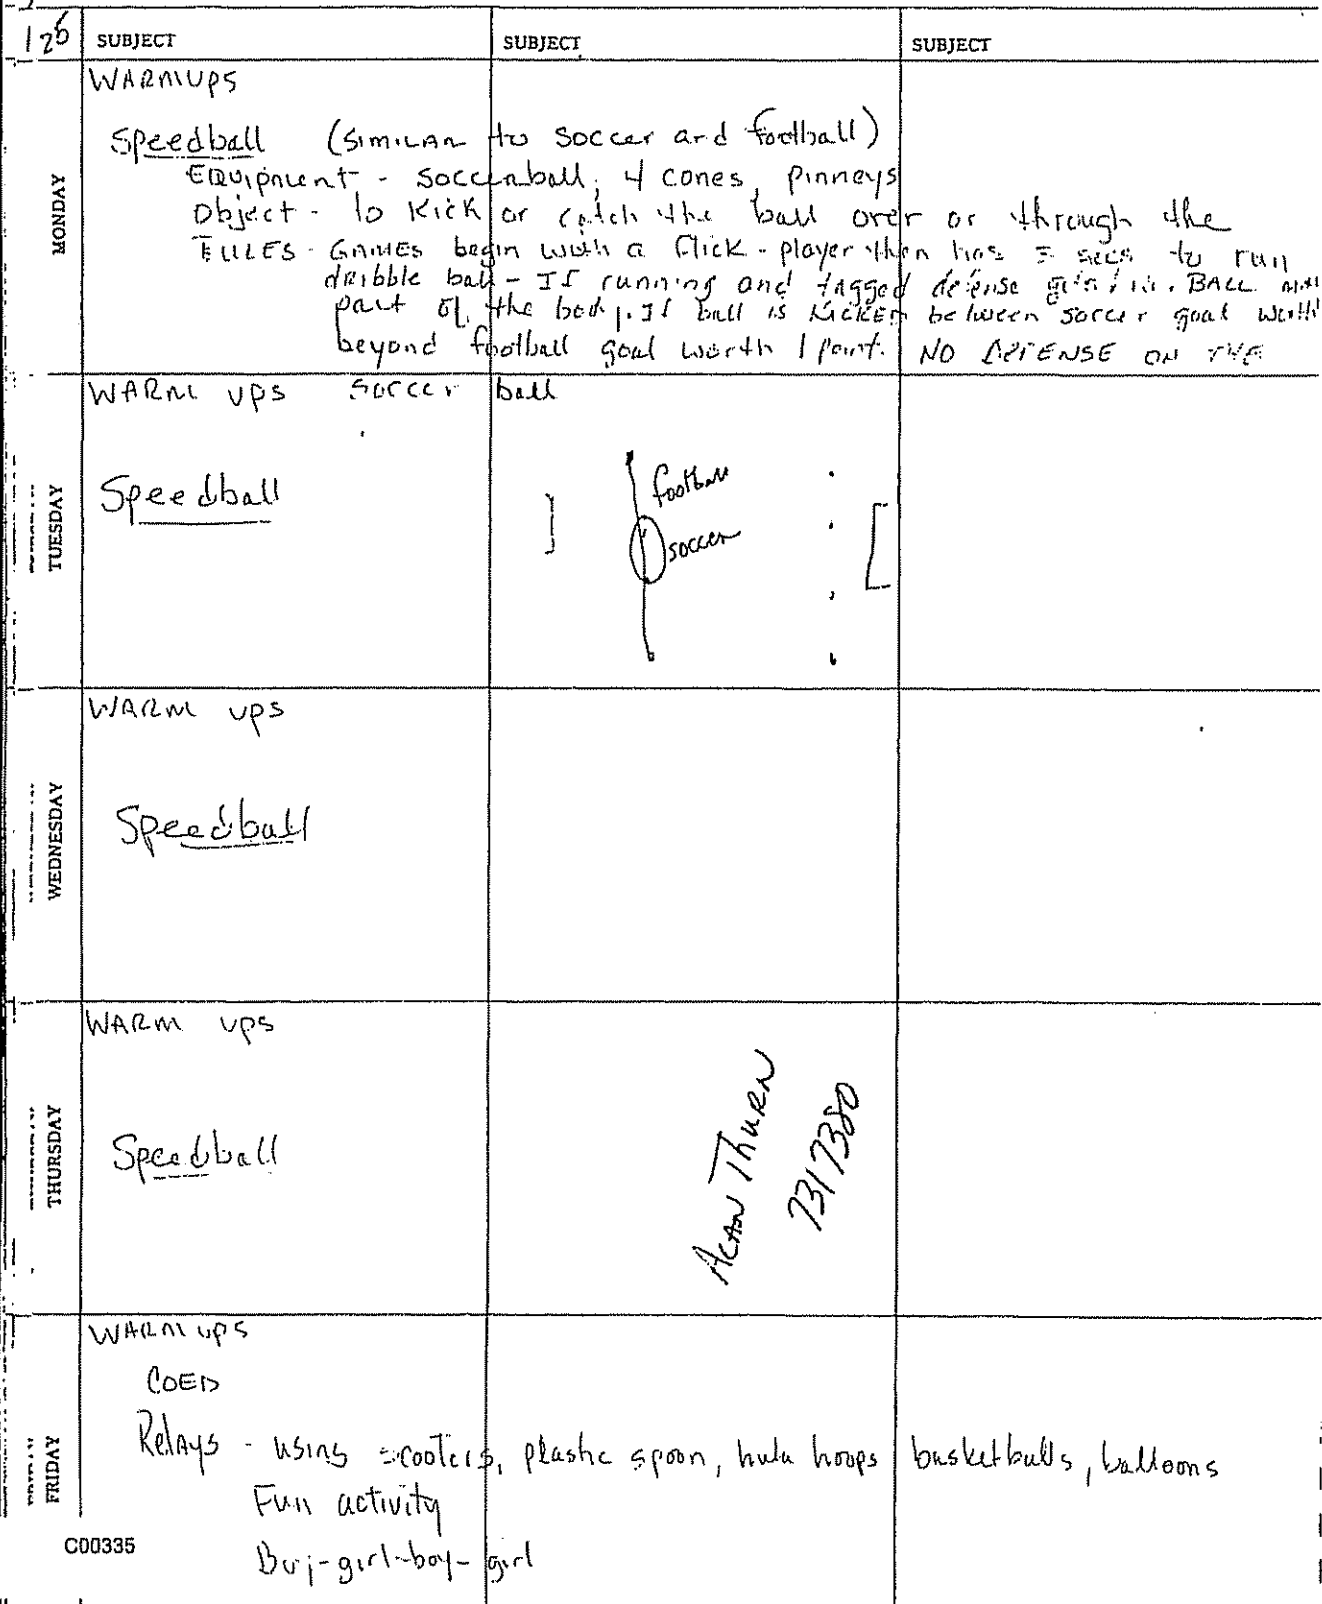 126 SUBJECT SUBJECT SUBJECT
MONDAY
WARMUPS
Speedball (SIMILAR to soccer and football)
EQUIPMENT - soccerball, 4 cones, pinneys
Object - to kick or catch the ball over or through the
RULES - GAMES begin with a flick - player then has 5 secs to run
dribble ball - If running and tagged defense BALL
part of the body. If ball is KICKED between soccer goal worth
beyond football goal worth 1 point. NO DEFENSE ON THE
TUESDAY
WARM UPS soccer ball
Speedball
football
soccer
WEDNESDAY
WARM UPS
Speedball
THURSDAY
WARM UPS
Speedball
ALAN THURN
7317380
FRIDAY
WARM UPS
COED
Relays - using scooters, plastic spoon, hula hoops basketballs, balloons
Fun activity
Boy-girl-boy-girl
C00335